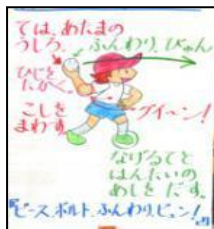 ては、あたまの
うしろ。
ふんわり、びゅん
ひじを
たかく。
こしを
まわす。
ブイーン!
なげるてと
はんたいの
あしを だす。
『ピース、ボルト、ふんわり、ビュン!』